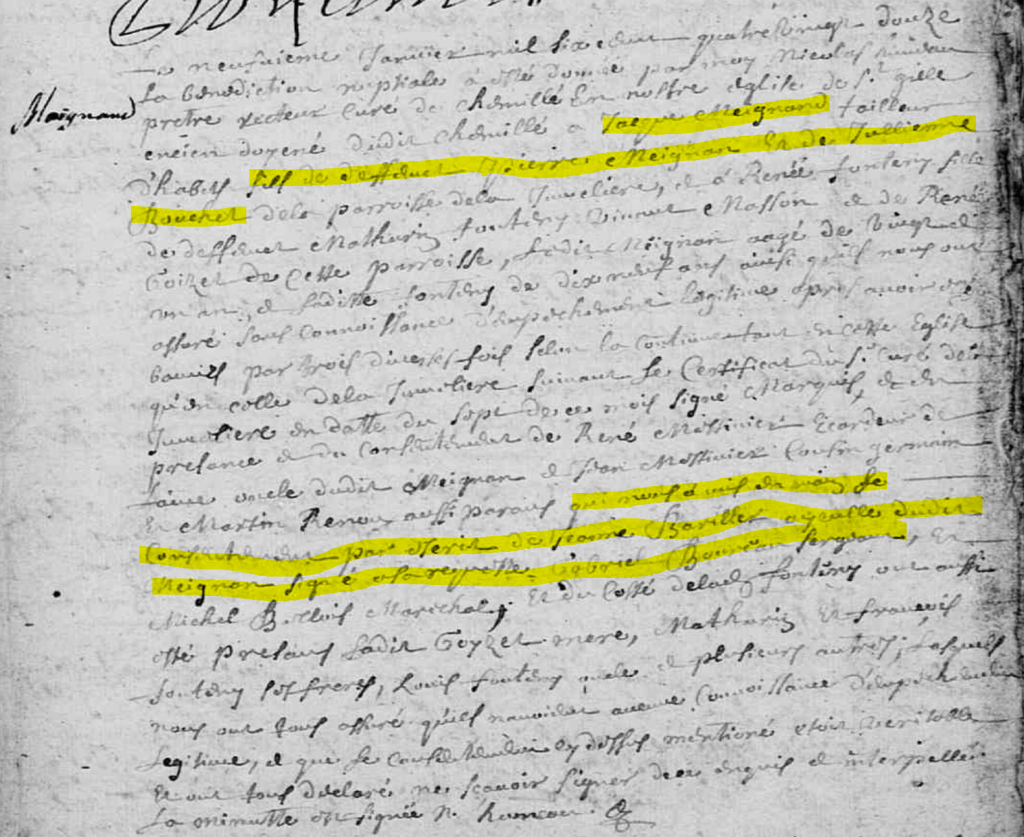 Le neufvieme Janvier mil six cent quatre vingt douze
la benediction nuptiale a esté donnée par moy Nicolas
Maignand
pretre recteur curé de Chemillé En nostre eglise de St gille
encien doyené dudit Chemillé a Jacque Meignand tailleur
d'habits fils de deffunct Pierre Meignan Et de Jullienne
Bouchet de la parroisse dela Jumeliere, et a Renée fonteny fille
de deffunct Mathurin fonteny vivant Masson et de Renée
Goizet de cette parroisse, ledit Meignan aagé de vingt et
un an, et laditte fonteny de dix neuf ans ainsi qu'ils nous ont
assuré sans connoissance d'enpechement legitime apres avoir esté
bannis par trois diverses fois selon la coutume tant en cette Eglise
qu'en celle dela Jumeliere suivant le Certificat du Sr Curé dela
Jumeliere en datte du sept de ce mois signé Marquis, et en
presance et du Consentement de René Messinier Cardeur de
laine oncle dudit Meignan et Jean Messinier Cousin germain
Et Martin Renou aussi parans qui nous a mis en main le
Consentement par escrit de Jeanne Bariller ayeulle dudit
Meignan signé a sa requeste Gabriel Boureau sergeant, Et
Michel Marechal, Et du Costé de lad. fonteny ont aussi
esté presans ladit Goyzet mere, Mathurin Et francois
fonteny ses freres, Louis fonteny oncle et plusieurs autres, Lesquels
nous ont tous assuré qu'ils n'avoient aucune Connoissance d'enpechement
legitime, et que le Consentement cy dessus mentioné etoit veritable
Et ont tous declaré ne sçavoir signer de ce enquis et interpellés
La minutte est signée N.